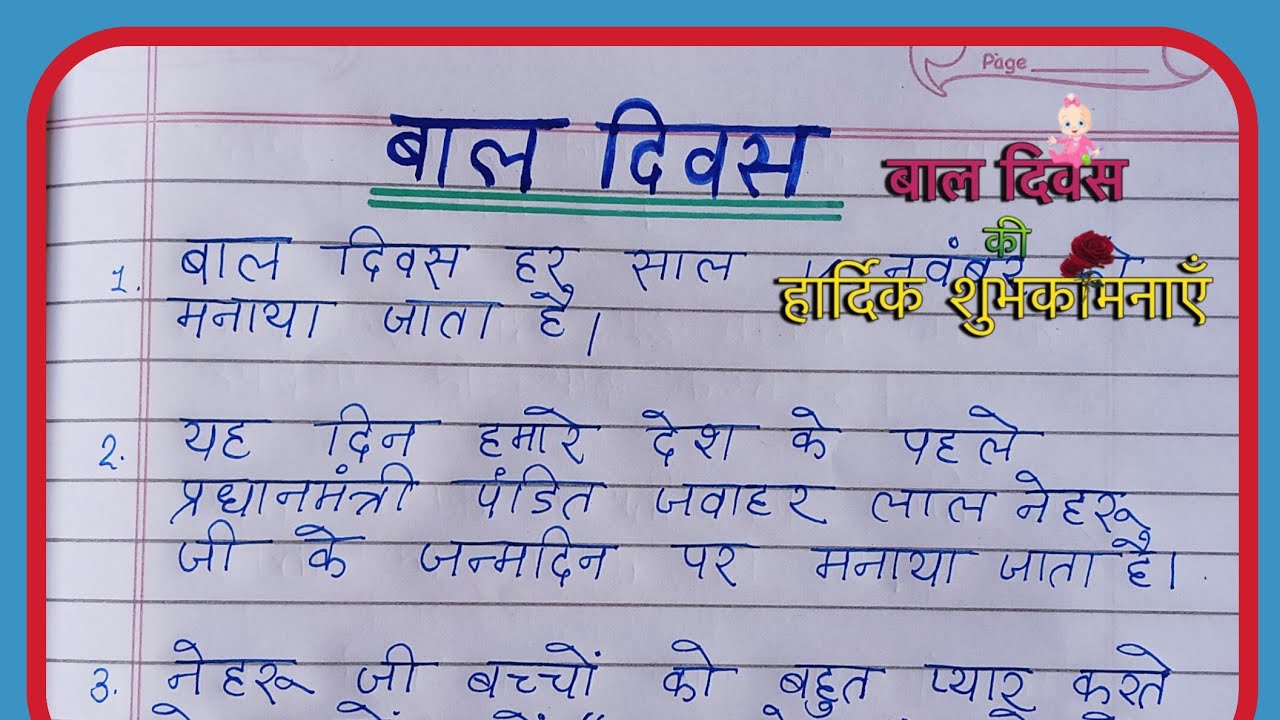 Page
बाल दिवस
बाल दिवस
की
हार्दिक शुभकामनाएँ
1. बाल दिवस हर साल नवंबर
मनाया जाता है।
2. यह दिन हमारे देश के पहले
प्रधानमंत्री पंडित जवाहर लाल नेहरू
जी के जन्मदिन पर मनाया जाता है।
3. नेहरू जी बच्चों को बहुत प्यार करते